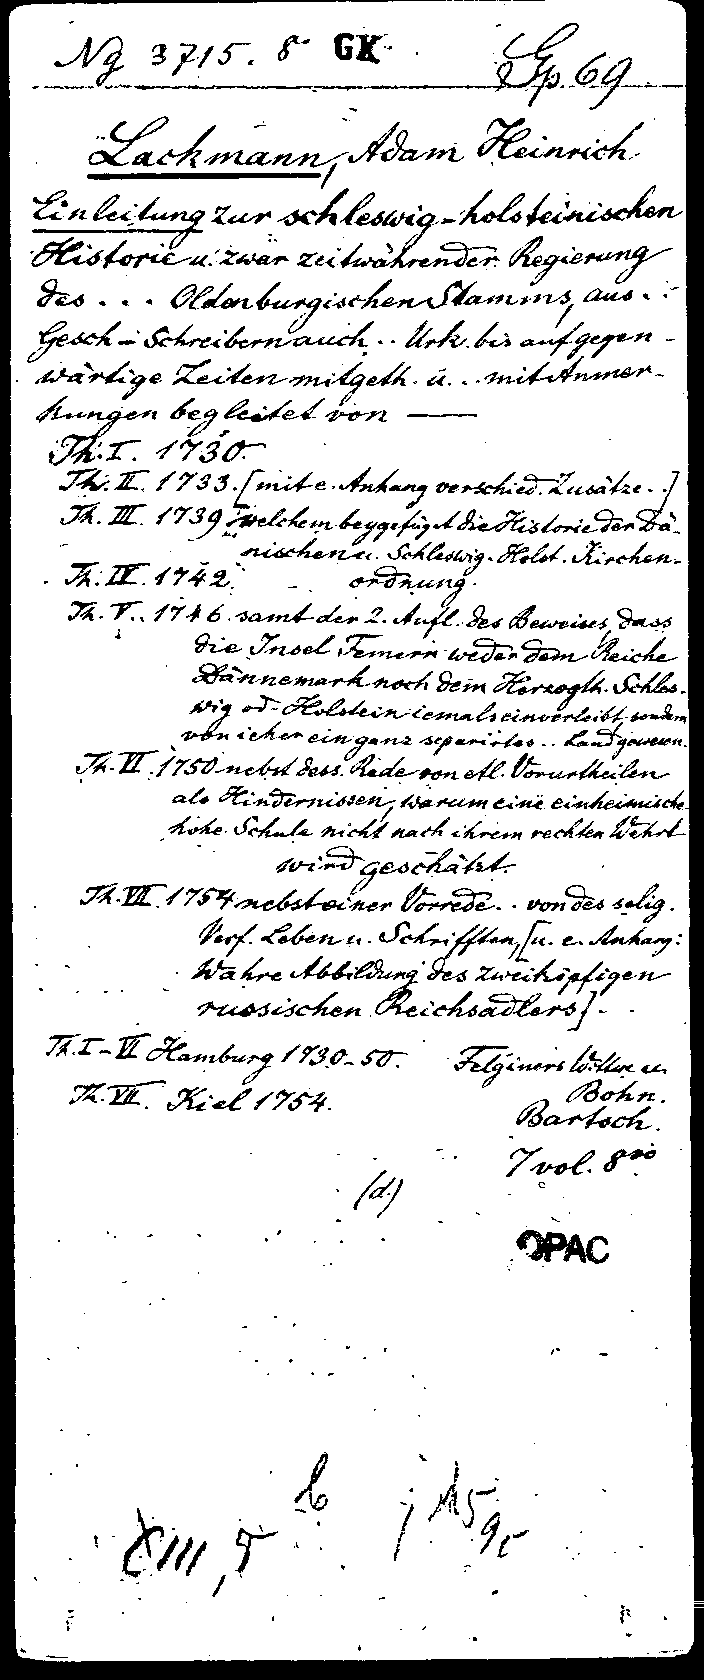 Ng 3715. 8° GK
Gp. 69
Lackmann, Adam Heinrich
Einleitung zur schleswig-holsteinischen
Historie u. zwar zeitwährender Regierung
des . . . Oldenburgischen Stamms, aus . .
Gesch-Schreibern auch . . Urk. bis auf gegen-
wärtige Zeiten mitgeth. u. . . mit Anmer-
kungen begleitet von ——
Th. I. 1730.
Th. II. 1733. [mit e. Anhang verschied. Zusätze. .]
Th. III. 1739 welchem beygefüget die Historie der Dä-
nischen u. Schleswig. Holst. Kirchen-
Th. IV. 1742. ordnung.
Th. V. . 1746. samt der 2. Aufl. des Beweises, dass
die Insel Femern weder dem Reiche
Dännemark noch dem Herzogth. Schles-
wig od. Holstein iemals einverleibt, sondern
von ieher ein ganz separirtes . . Land gewesen.
Th. VI. 1750 nebst dess. Rede von etl. Vorurtheilen
als Hindernissen, warum eine einheimische
hohe Schule nicht nach ihrem rechten Wehrt
wird geschätzt.
Th. VII. 1754 nebst einer Vorrede . . von des selig.
Verf. Leben u. Schrifften, [u. e. Anhang:
Wahre Abbildung des zweiköpfigen
russischen Reichsadlers].
Th. I-VI Hamburg 1730-50. Felginers Wittwe u.
Bohn.
Th. VII. Kiel 1754.
Bartsch.
7 vol. 8vo
(d.)
OPAC
XIII, 5